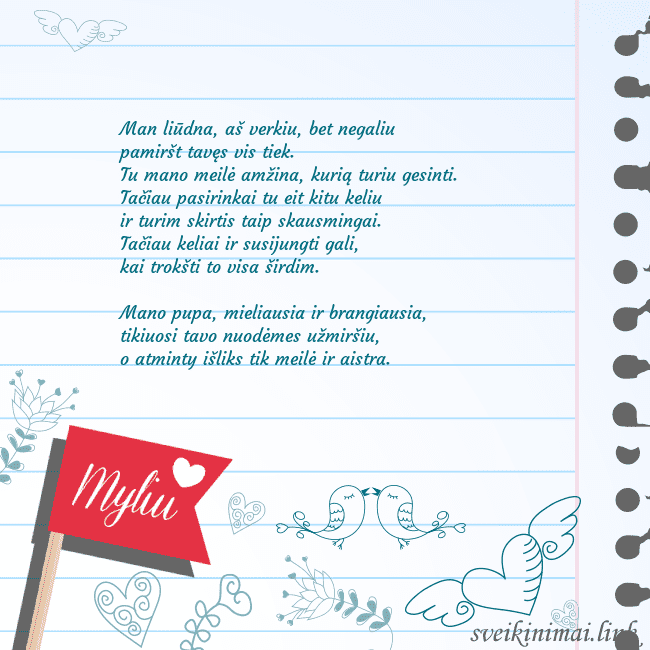 Man liūdna, aš verkiu, bet negaliu
pamiršt tavęs vis tiek.
Tu mano meilė amžina, kurią turiu gesinti.
Tačiau pasirinkai tu eit kitu keliu
ir turim skirtis taip skausmingai.
Tačiau keliai ir susijungti gali,
kai trokšti to visa širdim.

Mano pupa, mieliausia ir brangiausia,
tikiuosi tavo nuodėmes užmiršiu,
o atminty išliks tik meilė ir aistra.
Myliu
sveikinimai.link